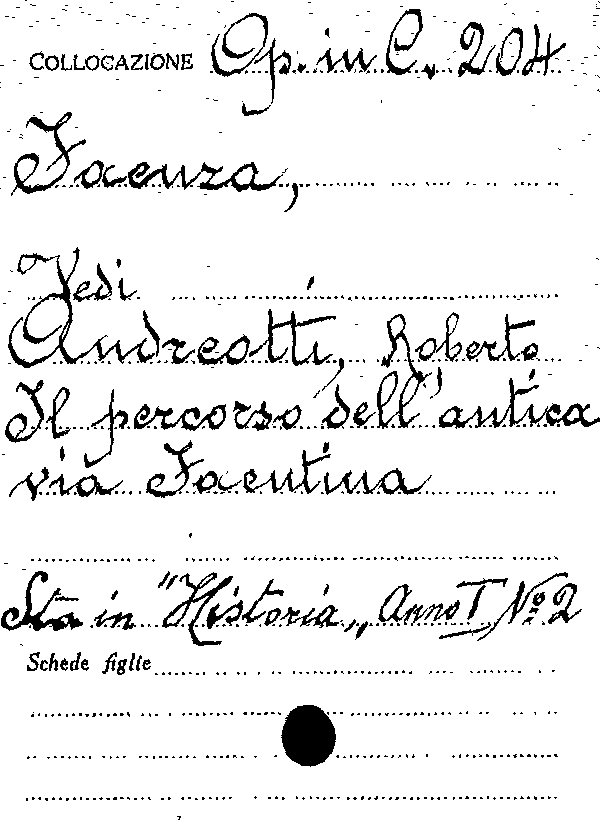 COLLOCAZIONE Op. in C. 204
Faenza,
Vedi
Andreotti, Roberto
Il percorso dell'antica
via Faentina
Sta in "Historia„ Anno I Nº 2
Schede figlie